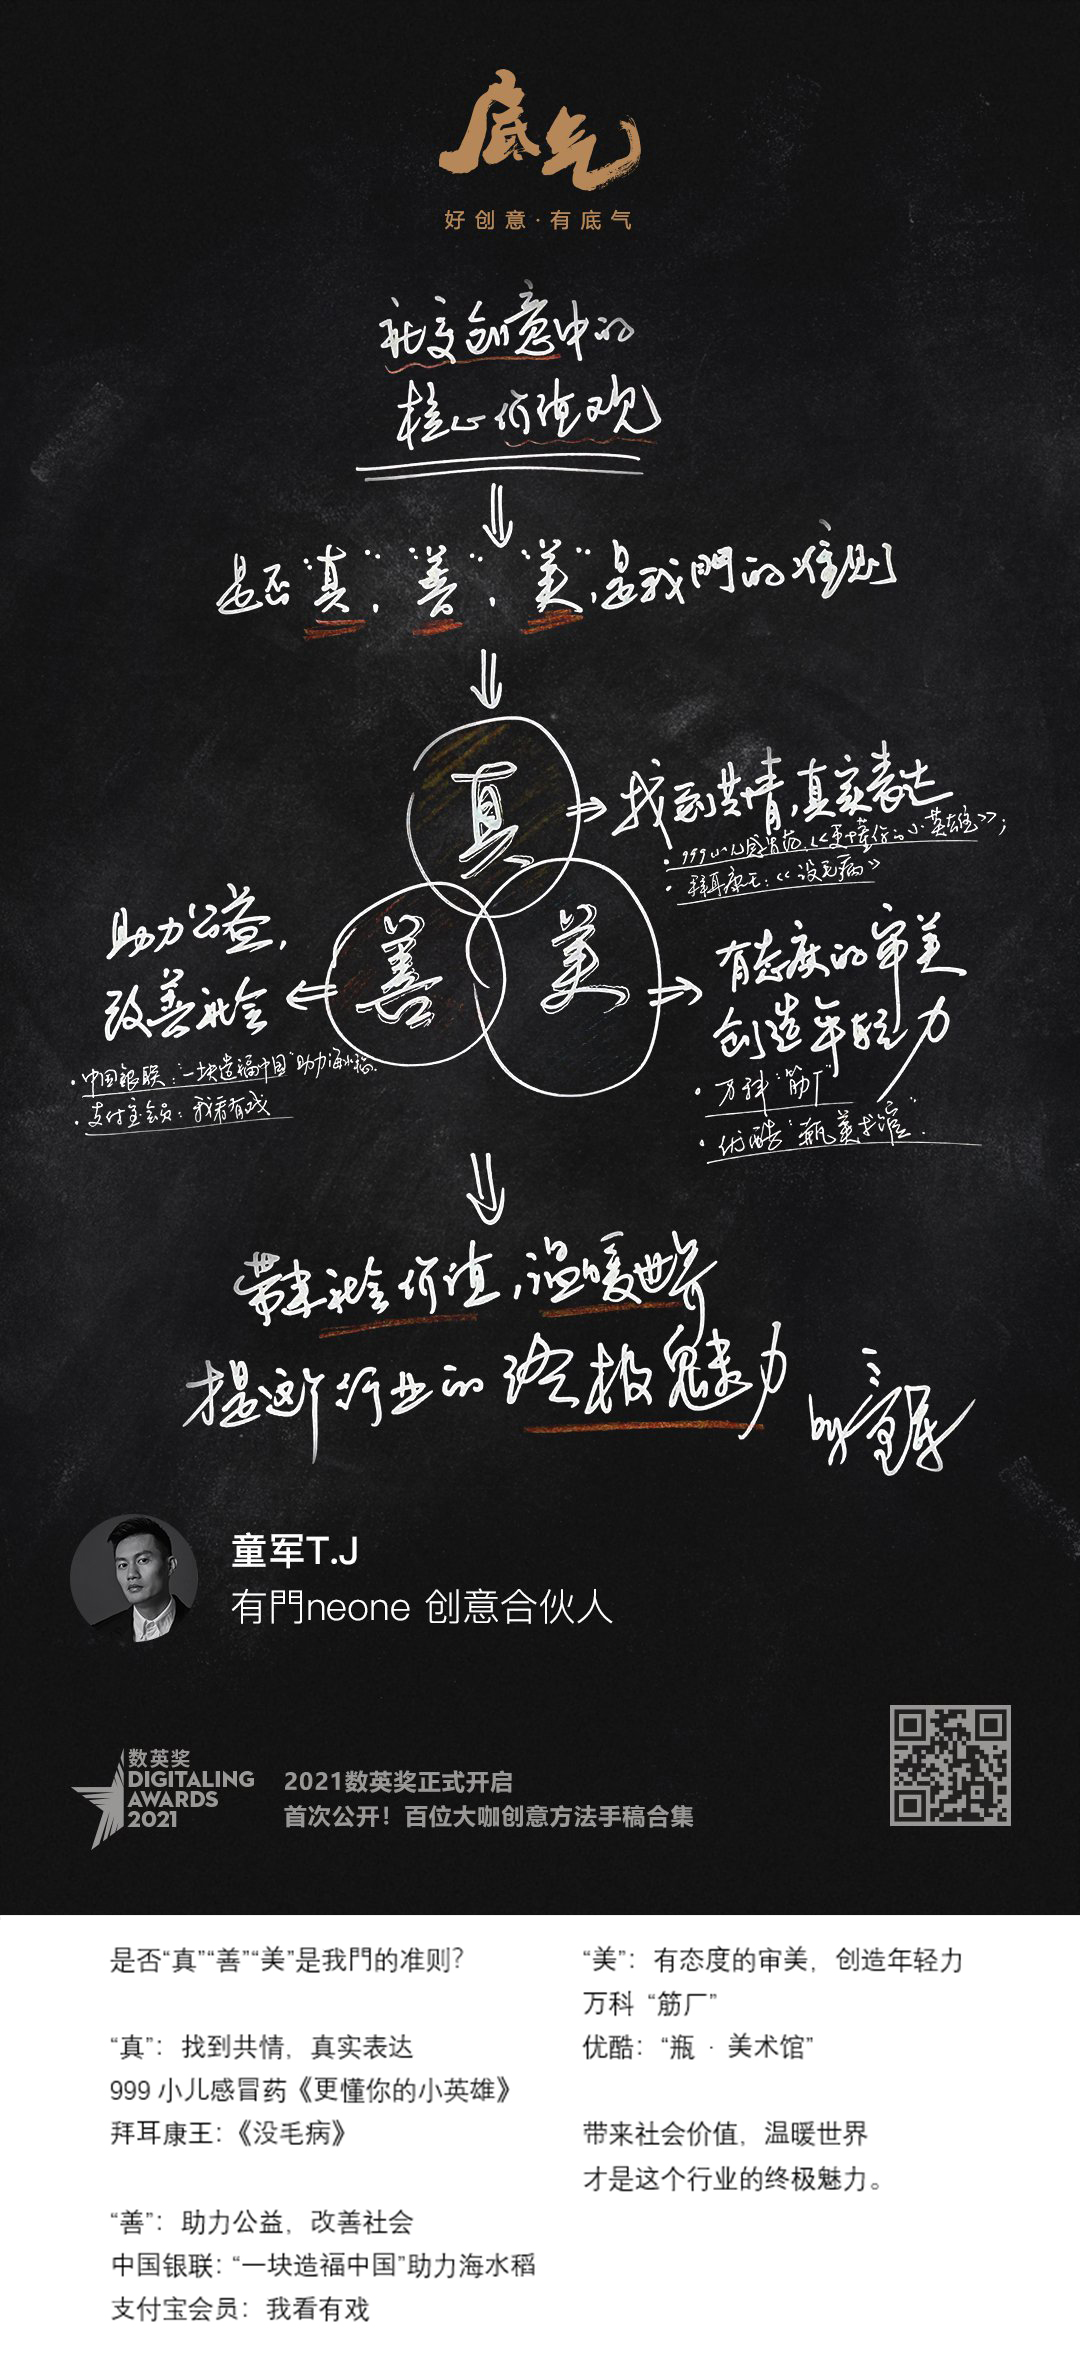 底气
好创意·有底气
社交创意中的
核心价值观
是否“真”，“善”，“美”，是我門的准则
真
找到共情，真实表达
·999小儿感冒药《更懂你的小英雄》；
·拜耳康王：《没毛病》
善
美
助力公益，
改善社会
·中国银联：“一块造福中国”助力海水稻.
·支付宝会员：我看有戏
有态度的审美
创造年轻力
·万科“筋厂”
·优酷“瓶美术馆”.
带来社会价值，温暖世界
才是这个行业的终极魅力
by童军
童军T.J
有門neone 创意合伙人
数英奖
DIGITALING
AWARDS
2021
2021数英奖正式开启
首次公开！百位大咖创意方法手稿合集
是否“真”“善”“美”是我門的准则？
“真”：找到共情，真实表达
999 小儿感冒药《更懂你的小英雄》
拜耳康王：《没毛病》
“善”：助力公益，改善社会
中国银联：“一块造福中国”助力海水稻
支付宝会员：我看有戏
“美”：有态度的审美，创造年轻力
万科 “筋厂”
优酷：“瓶 · 美术馆”
带来社会价值，温暖世界
才是这个行业的终极魅力。